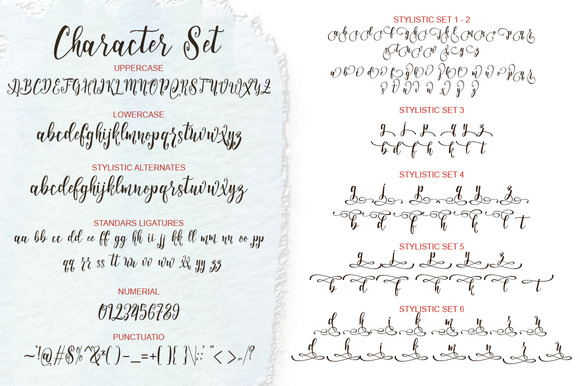 Character Set
UPPERCASE
ABCDEFGHIJKLMNOPQRSTUVWXYZ
LOWERCASE
abcdefghijklmnopqrstuvwxyz
STYLISTIC ALTERNATES
abcdefghijklmnopqrstuvwxyz
STANDARS LIGATURES
aa bb cc dd ee ff gg hh ii jj kk ll mm nn oo pp
qq rr ss tt uu vv ww xx yy zz
NUMERIAL
0123456789
PUNCTUATIO
STYLISTIC SET 1 - 2
STYLISTIC SET 3
g j p q y z
b d f h k l t
STYLISTIC SET 4
g j p q y z
b d f h k l t
STYLISTIC SET 5
g j p q y z
b d f h k l t
STYLISTIC SET 6
d h i k m n r u
d h i k m n r u